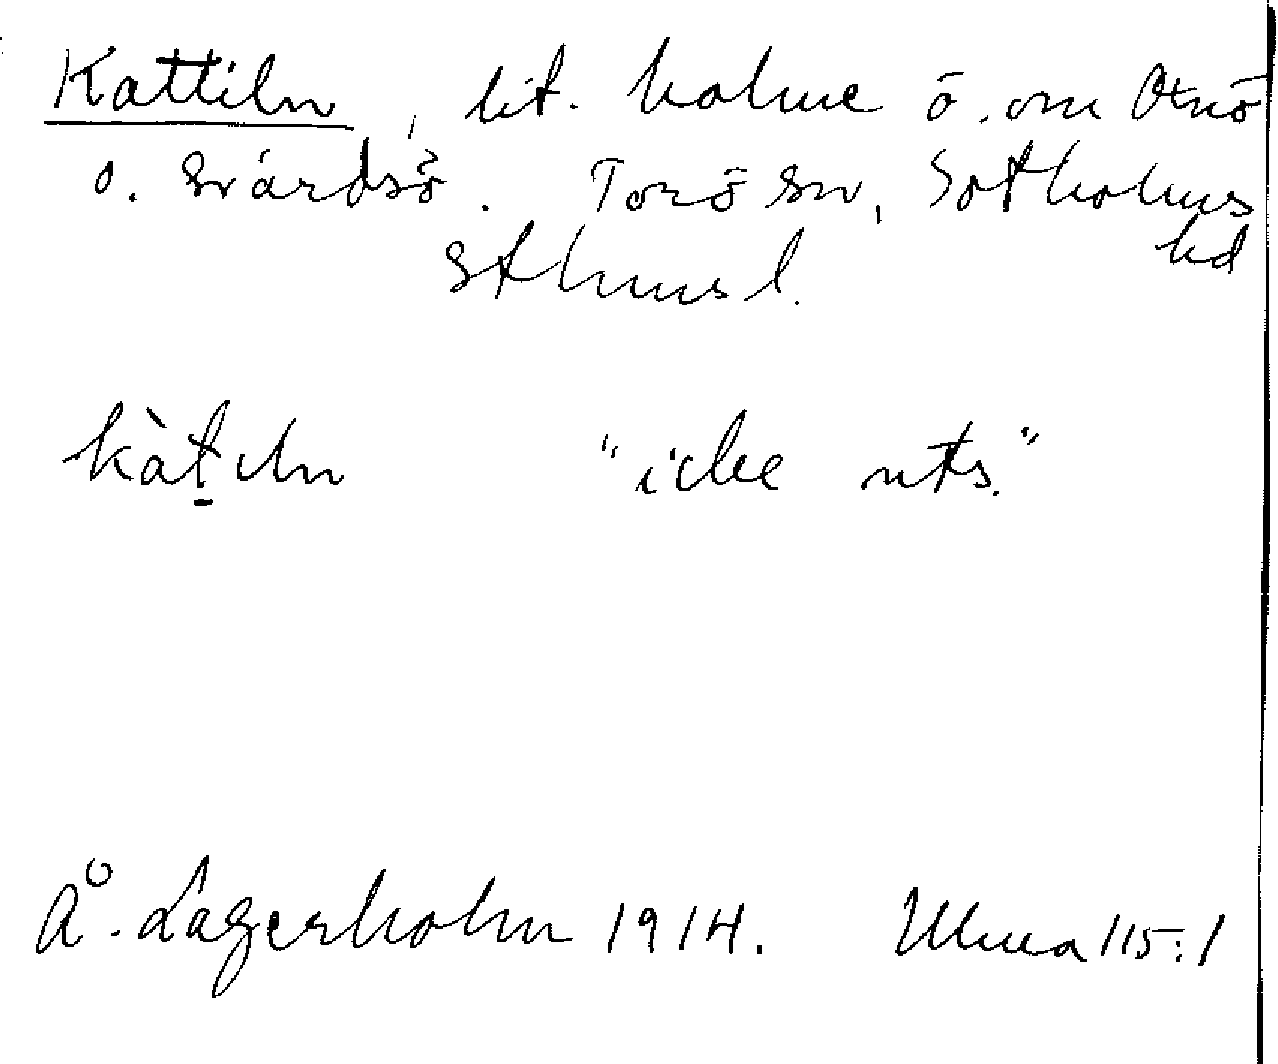 Kattiln, lit. holme ö. om Otnö
o. Svärdsö. Torö sn, Sotholms
hd
Sthms l.
kàtiln "icke uts."
Å. Lagerholm 1914. Ulma 115:1